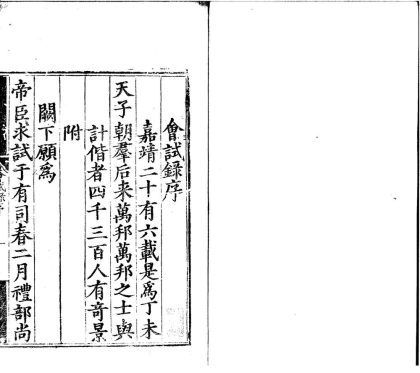 會試錄序
嘉靖二十有六載是為丁未
天子朝羣后来萬邦萬邦之士與
計偕者四千三百人有竒景
附
闕下願為
帝臣求試于有司春二月禮部尚